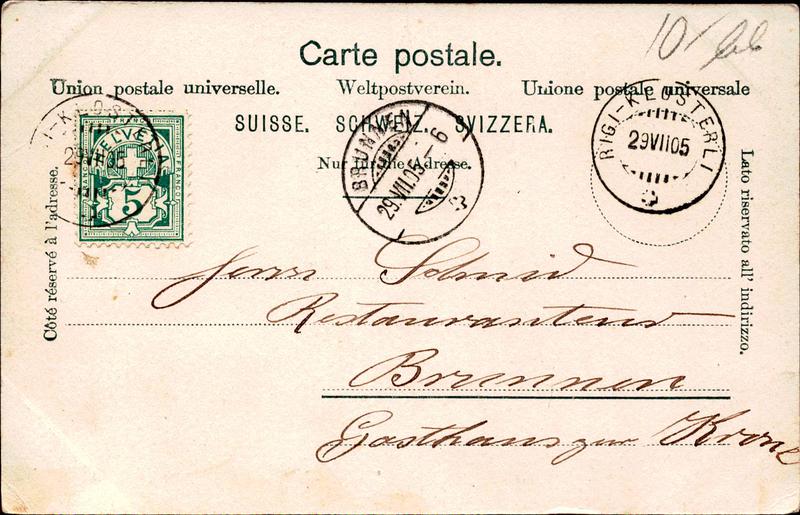 Carte postale.
Union postale universelle. Weltpostverein. Unione postale universale
SUISSE. SCHWEIZ. SVIZZERA.
Nur für die Adresse.
Côté réservé à l'adresse.
Lato riservato all' indirizzo.
HELVETIA
FRANCO
5
29 VII 05
BRUNNEN
29.VII.05.-6
RIGI-KLÖSTERLI
29VII05
Herrn Schmid
Restauranteur
Brunnen
Gasthaus zur Krone
10